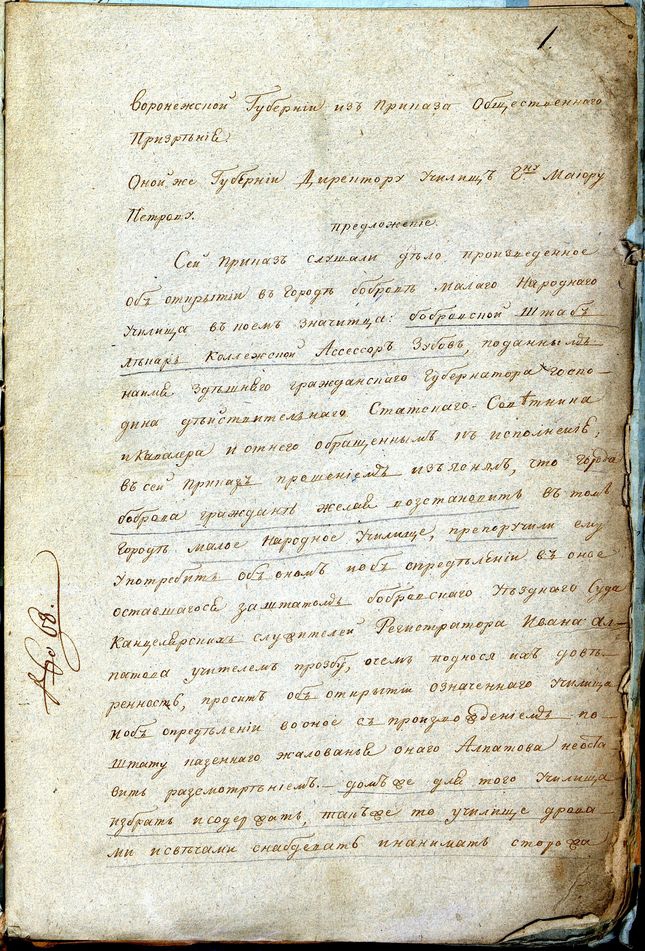 1.
Воронежской Губернїи изъ приказа Общественнаго
Призрѣнія
Оной же Губернїи Директору Училищъ Г-ну Маїору
Петрову.
предложенїе.
Сей приказъ слушали дѣло произведенное
объ открытїи въ городѣ бобровѣ малаго Народнаго
училища въ коемъ значитца: бобровской Штабъ
лѣкарь Коллежской Ассессоръ Зубовъ, поданнымъ
на имя здѣшняго гражданскаго Губернатора Госпо-
дина дѣйствительнаго Статскаго Советника
и Кавалера и отнего обращеннымъ къ исполненїю
въ сей приказъ прошенїемъ изъяснялъ, что города
боброва граждане желая возстановить въ томъ
городѣ малое Народное Училище, препоручили ему
употребить объ ономъ и объ опредѣленїи въ оное
оставшагося заштатомъ бобровскаго Уѣзднаго Суда
Канцелярскихъ служителей Регистратора Ивана Ал-
патова учителемъ прозбу, очемъ поднося ихъ довѣ-
ренность, проситъ объ открытїи означеннаго Училища
и объ опредѣленїи во оное съ произвожденїемъ по
штату казеннаго жалованья онаго Алпатова неоста
вить разсмотрѣнїемъ. – домъ же для того Училища
избрать и содержать, такъ же то училище дрова-
ми и свѣчами снабдевать и нанимать сторожа